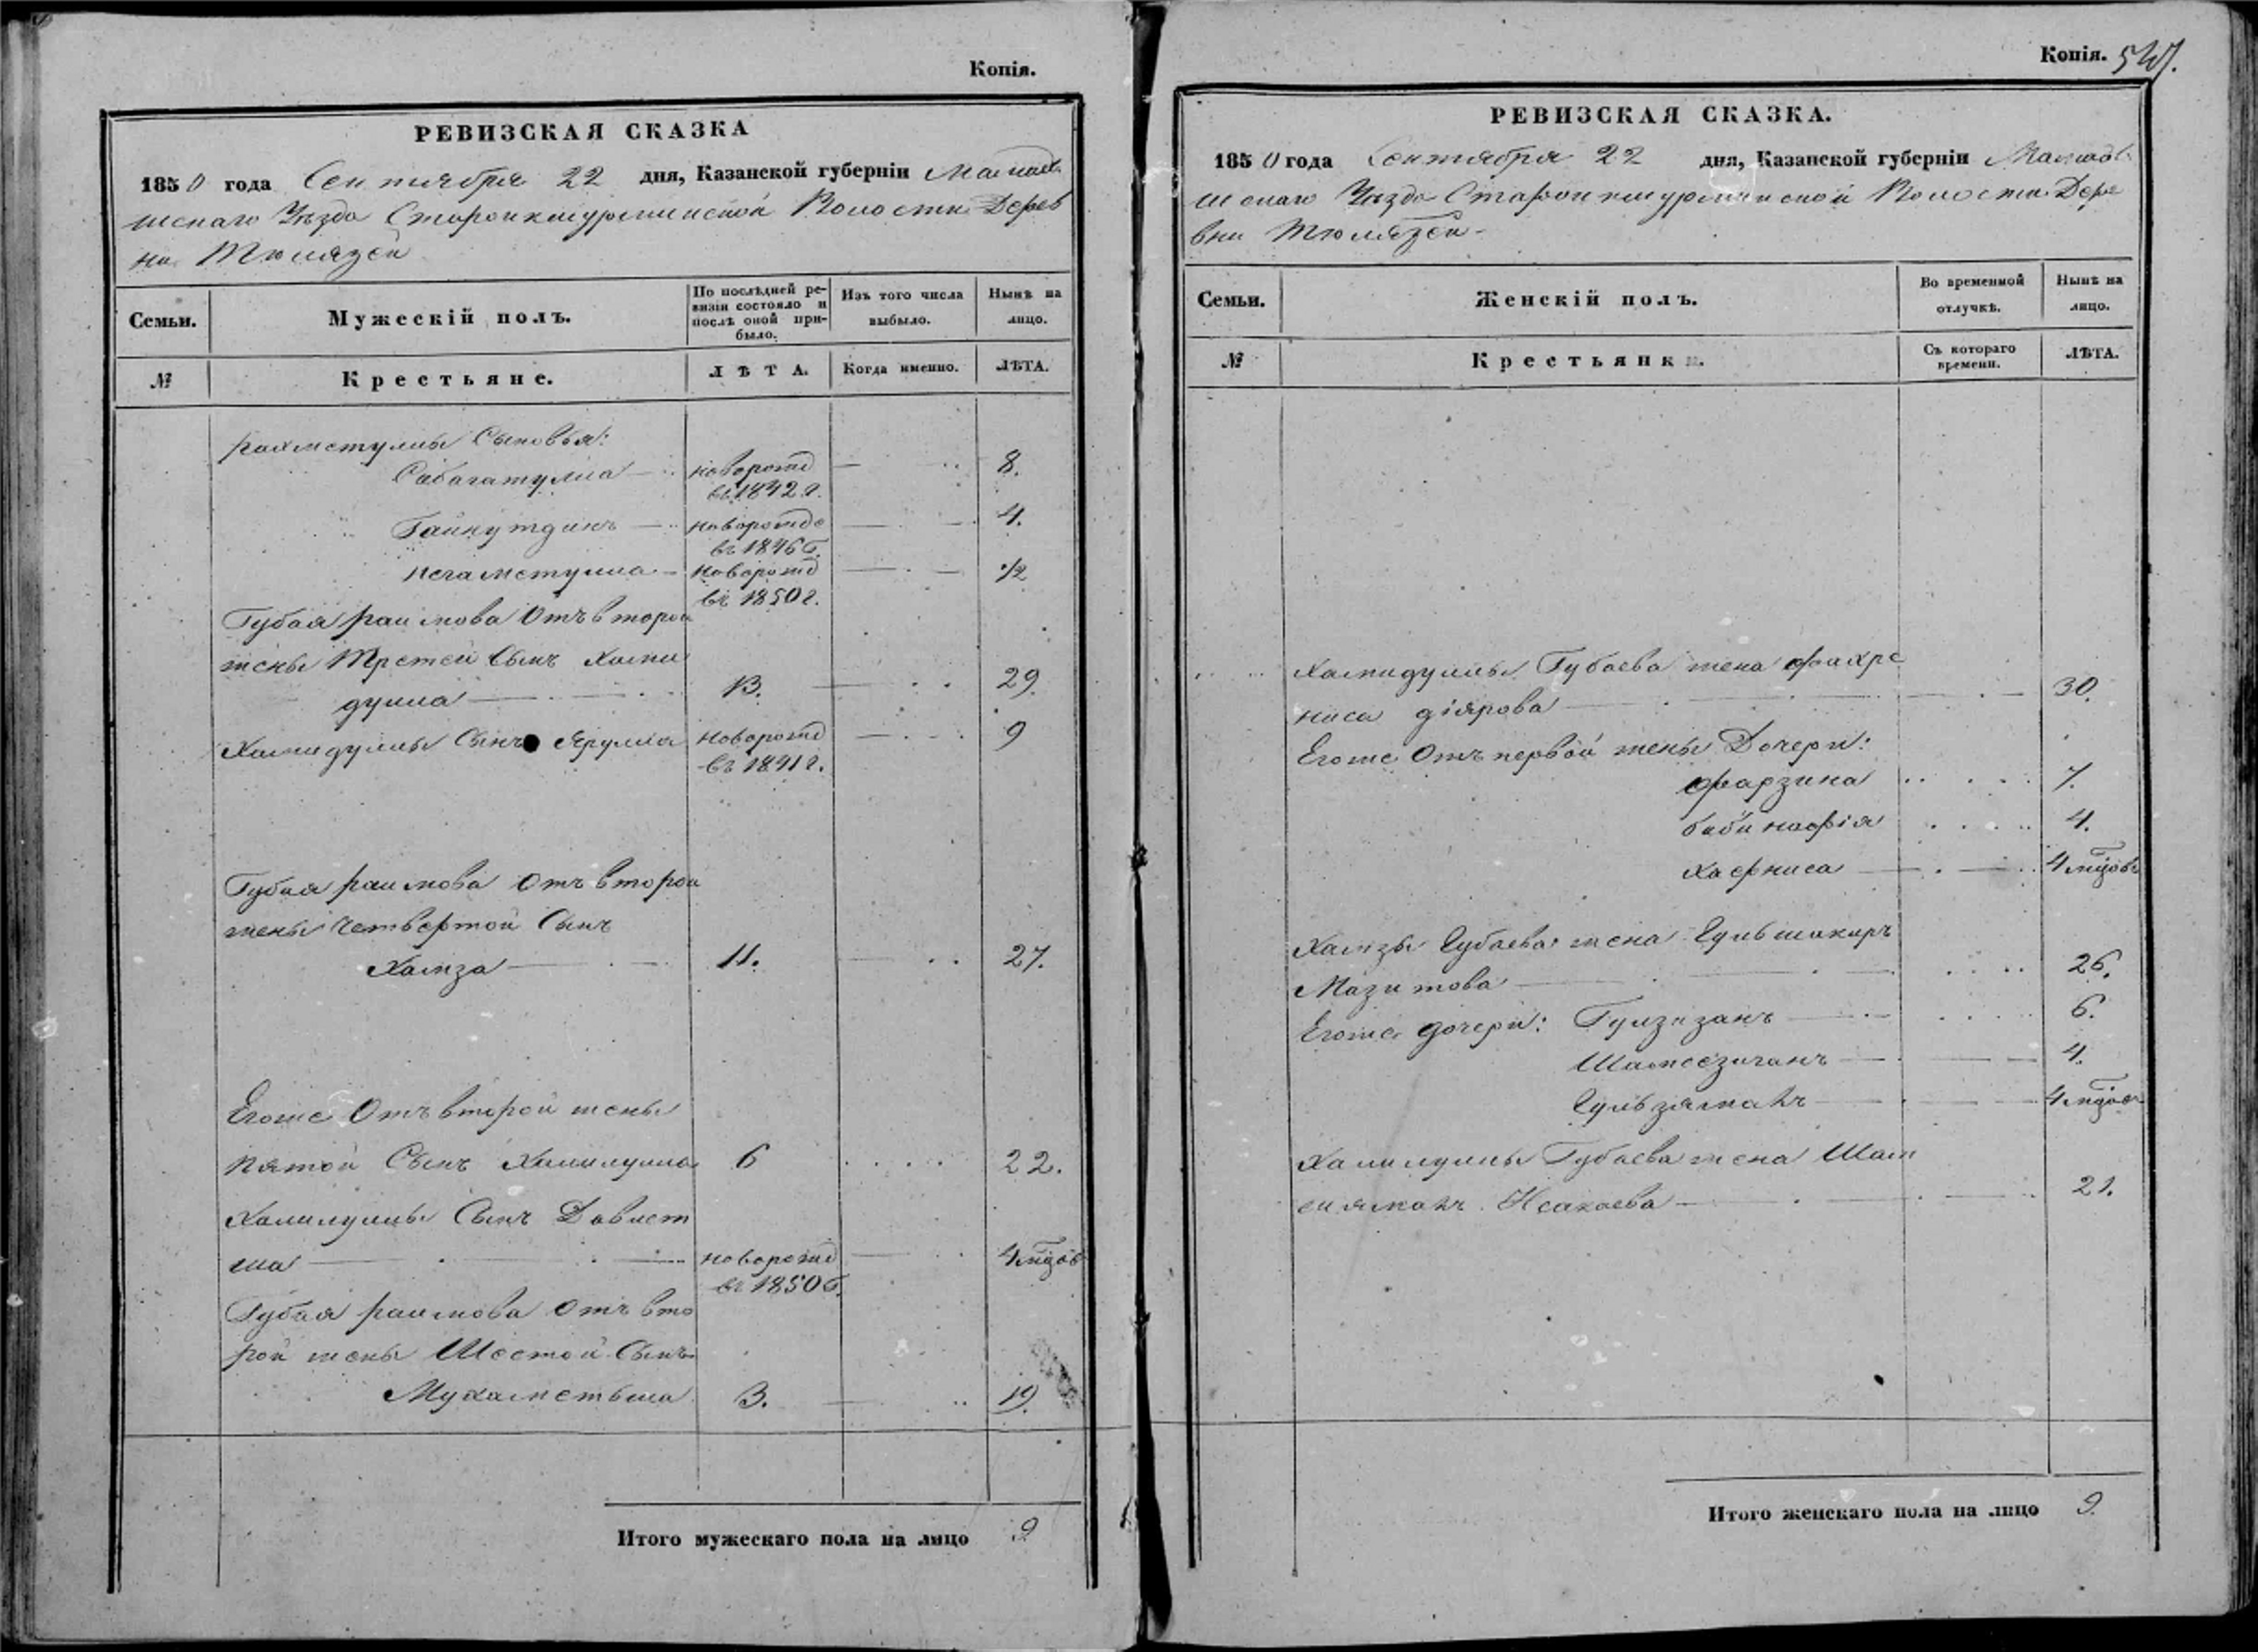 Копія.
РЕВИЗСКАЯ СКАЗКА
1850 года Сентября 22 дня, Казанской губерніи Мамады
шскаго Уѣзда Староикшурминской Волости Дерев
ни Тюлязей
Семьи.
Мужескій полъ.
По послѣдней ре-
визіи состояло и
послѣ оной при-
было.
Изъ того числа
выбыло.
Нынѣ на
лицо.
№
Крестьяне.
ЛѢТА.
Когда именно.
ЛѢТА.
рахметуллы Сыновья:
Сабагатулла — новорожд — 8.
въ 1842 г.
Гайнутдинъ — новорожде — 4.
въ 1846 г.
негаметулла — новорожд — 1/2
въ 1850 г.
Губая раимова Отъ второй
жены Третей Сынъ Хами
дулла — 13. — 29.
Хамидуллы Сынъ Ярулла новорожд — 9
въ 1841 г.
Губая раимова Отъ второй
жены Четвертой Сынъ
Хамза — 11. — 27.
Егоже Отъ второй жены
пятой Сынъ Халилулла 6 .... 22.
Халилуллы Сынъ Давлет
ша — новорожд — 4 мцов
въ 1850 г.
Губая раимова Отъ вто
рой жены Шестой Сынъ
Мухаметьша 3. — 19.
Итого мужескаго пола на лицо 9
Копія.
РЕВИЗСКАЯ СКАЗКА.
1850 года Сентября 22 дня, Казанской губерніи Мамады
шскаго Уѣзда Староикшурминской Волости Дере
вни Тюлязей
Семьи.
Женскій полъ.
Во временной
отлучкѣ.
Нынѣ на
лицо.
№
Крестьянки.
Съ котораго
времени.
ЛѢТА.
Хамидуллы Губаева жена фахре
ниса діярова — 30.
Егоже Отъ первой жены Дочери:
фарзина .... 7.
биби нафія .... 4.
Хафниса — 4 мцовъ
Хамзы Губаева жена Гульшакиръ
Мазитова — 26.
Егоже дочери: Гулзизанъ — 6.
Шамсезиганъ — 4.
Гульзямалъ — 4 мцовъ
Халилуллы Губаева жена Шам
сиямалъ Исакаева — 21.
Итого женскаго пола на лицо 9